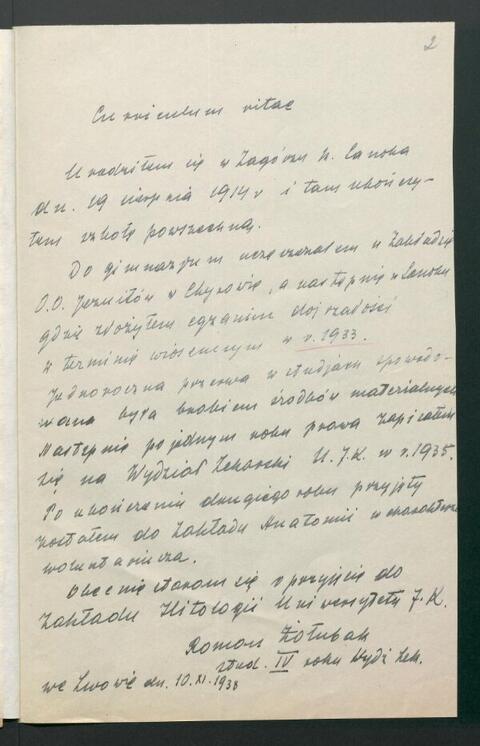 2
Curriculum vitae
Urodziłem się w Zagórzu k. Sanoka
dn. 19 sierpnia 1914 r i tam ukończy-
łem szkołę powszechną.
Do gimnazjum uczęszczałem w Zakładzie
O.O. Jezuitów w Chyrowie, a następnie w Sanoku
gdzie złożyłem egzamin dojrzałości
w terminie wiosennym w r. 1933.
Jednoroczna przerwa w studjach spowodo-
wana była brakiem środków materialnych
Następnie po jednym roku prawa zapisałem
się na Wydział Lekarski U.J.K. w r. 1935.
Po ukończeniu drugiego roku przyjęty
zostałem do Zakładu Anatomii w charakterze
wolontariusza.
Obecnie staram się o przyjęcie do
Zakładu Histologii Uniwersytetu J.K.
Roman Żołubak
stud. IV roku Wydz. Lek.
we Lwowie dn. 10.XI.1938